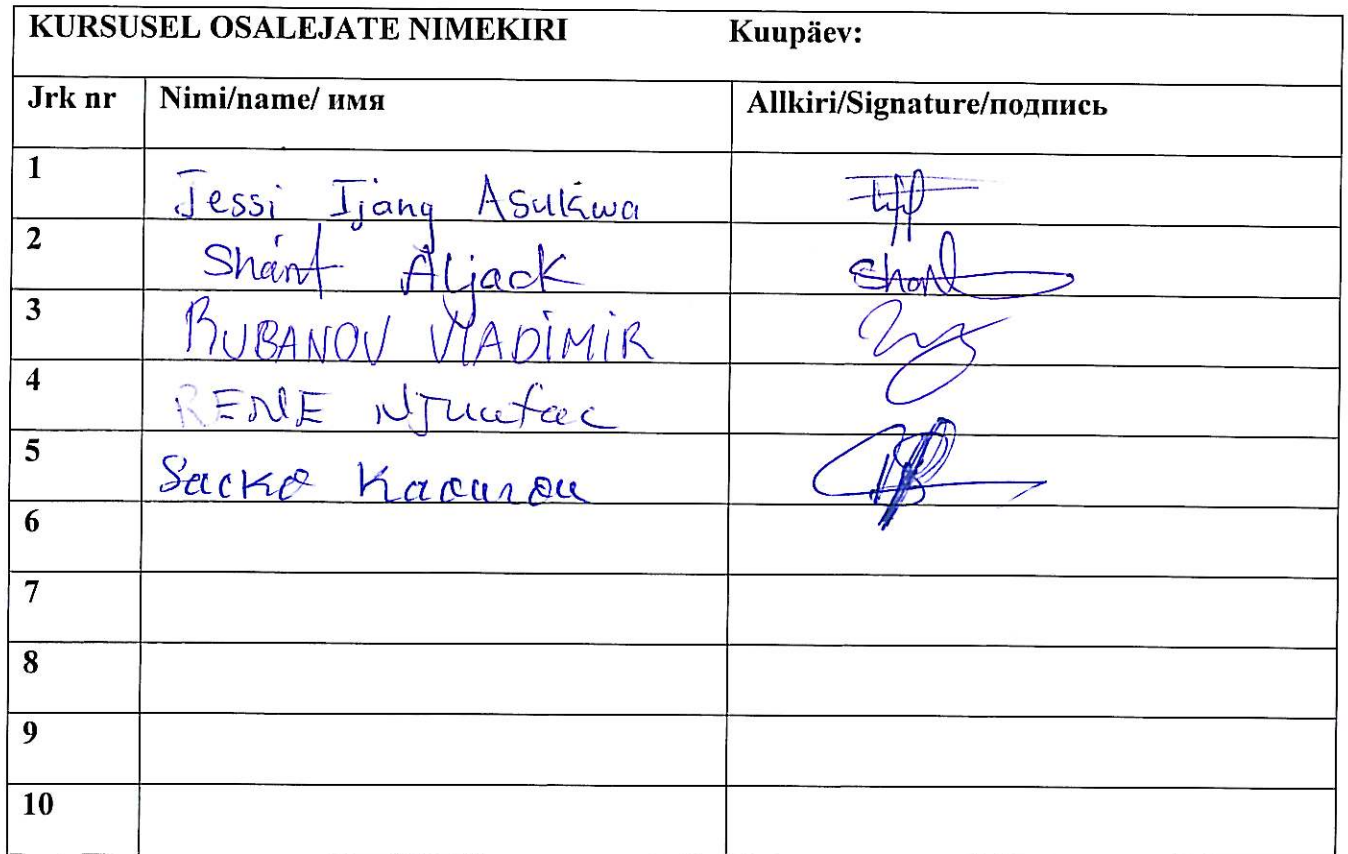 KURSUSEL OSALEJATE NIMEKIRI Kuupäev:
Jrk nr Nimi/name/ имя Allkiri/Signature/подпись
1 Jessi Ijang Asukwa
2 Shant Aljack Shant
3 RUBANOV VLADIMIR
4 RENE
5 Sacko
6
7
8
9
10